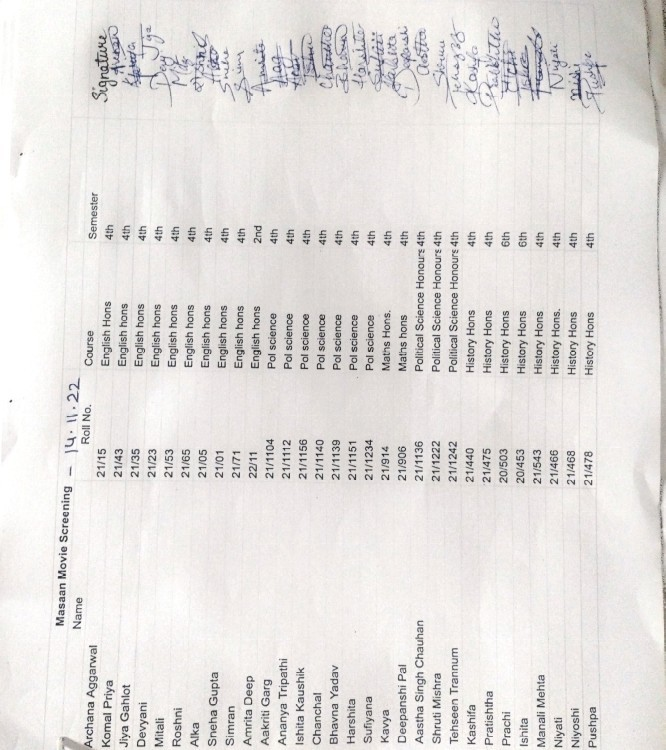 Masaan Movie Screening – 14.11.22
Name Roll No. Course Semester Signature
Archana Aggarwal 21/15 English Hons 4th
Komal Priya 21/43 English hons 4th
Jiya Gahlot 21/35 English hons 4th Jiya
Devyani 21/23 English hons 4th
Mitali 21/53 English hons 4th
Roshni 21/65 English hons 4th
Alka 21/05 English hons 4th
Sneha Gupta 21/01 English hons 4th
Simran 21/71 English hons 4th
Amrita Deep 22/11 English hons 2nd
Aakriti Garg 21/1104 Pol science 4th
Ananya Tripathi 21/1112 Pol science 4th
Ishita Kaushik 21/1156 Pol science 4th
Chanchal 21/1140 Pol science 4th
Bhavna Yadav 21/1139 Pol science 4th
Harshita 21/1151 Pol science 4th
Sufiyana 21/1234 Pol science 4th
Kavya 21/914 Maths Hons. 4th
Deepanshi Pal 21/906 Maths hons 4th
Aastha Singh Chauhan 21/1136 Political Science Honours 4th Aastha
Shruti Mishra 21/1222 Political Science Honours 4th
Tehseen Trannum 21/1242 Political Science Honours 4th
Kashifa 21/440 History Hons 4th
Pratishtha 21/475 History Hons 4th
Prachi 20/503 History Hons 6th
Ishita 20/453 History Hons 6th
Manali Mehta 21/543 History Hons 4th
Niyati 21/466 History Hons. 4th
Niyoshi 21/468 History Hons 4th
Pushpa 21/478 History Hons 4th